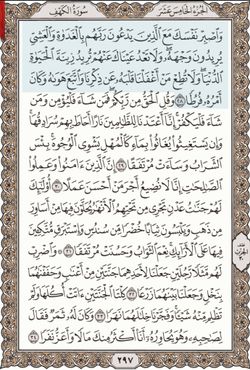 الجزء الخامس عشر
سورة الكهف
وَٱصۡبِرۡ نَفۡسَكَ مَعَ ٱلَّذِينَ يَدۡعُونَ رَبَّهُم بِٱلۡغَدَوٰةِ وَٱلۡعَشِيِّ
يُرِيدُونَ وَجۡهَهُۥۖ وَلَا تَعۡدُ عَيۡنَاكَ عَنۡهُمۡ تُرِيدُ زِينَةَ ٱلۡحَيَوٰةِ
ٱلدُّنۡيَاۖ وَلَا تُطِعۡ مَنۡ أَغۡفَلۡنَا قَلۡبَهُۥ عَن ذِكۡرِنَا وَٱتَّبَعَ هَوَىٰهُ وَكَانَ
أَمۡرُهُۥ فُرُطٗا ٢٨ وَقُلِ ٱلۡحَقُّ مِن رَّبِّكُمۡۖ فَمَن شَآءَ فَلۡيُؤۡمِن وَمَن
شَآءَ فَلۡيَكۡفُرۡۚ إِنَّآ أَعۡتَدۡنَا لِلظَّٰلِمِينَ نَارًا أَحَاطَ بِهِمۡ سُرَادِقُهَاۚ
وَإِن يَسۡتَغِيثُواْ يُغَاثُواْ بِمَآءٖ كَٱلۡمُهۡلِ يَشۡوِي ٱلۡوُجُوهَۚ بِئۡسَ
ٱلشَّرَابُ وَسَآءَتۡ مُرۡتَفَقًا ٢٩ إِنَّ ٱلَّذِينَ ءَامَنُواْ وَعَمِلُواْ
ٱلصَّٰلِحَٰتِ إِنَّا لَا نُضِيعُ أَجۡرَ مَنۡ أَحۡسَنَ عَمَلًا ٣٠ أُوْلَٰٓئِكَ
لَهُمۡ جَنَّٰتُ عَدۡنٖ تَجۡرِي مِن تَحۡتِهِمُ ٱلۡأَنۡهَٰرُ يُحَلَّوۡنَ فِيهَا مِنۡ أَسَاوِرَ
مِن ذَهَبٖ وَيَلۡبَسُونَ ثِيَابًا خُضۡرٗا مِّن سُندُسٖ وَإِسۡتَبۡرَقٖ مُّتَّكِـِٔينَ
فِيهَا عَلَى ٱلۡأَرَآئِكِۚ نِعۡمَ ٱلثَّوَابُ وَحَسُنَتۡ مُرۡتَفَقٗا ٣١ وَٱضۡرِبۡ
لَهُم مَّثَلٗا رَّجُلَيۡنِ جَعَلۡنَا لِأَحَدِهِمَا جَنَّتَيۡنِ مِنۡ أَعۡنَٰبٖ وَحَفَفۡنَٰهُمَا
بِنَخۡلٖ وَجَعَلۡنَا بَيۡنَهُمَا زَرۡعٗا ٣٢ كِلۡتَا ٱلۡجَنَّتَيۡنِ ءَاتَتۡ أُكُلَهَا وَلَمۡ
تَظۡلِم مِّنۡهُ شَيۡـٔٗاۚ وَفَجَّرۡنَا خِلَٰلَهُمَا نَهَرٗا ٣٣ وَكَانَ لَهُۥ ثَمَرٞ فَقَالَ
لِصَٰحِبِهِۦ وَهُوَ يُحَاوِرُهُۥٓ أَنَا۠ أَكۡثَرُ مِنكَ مَالٗا وَأَعَزُّ نَفَرٗا ٣٤
٢٩٧